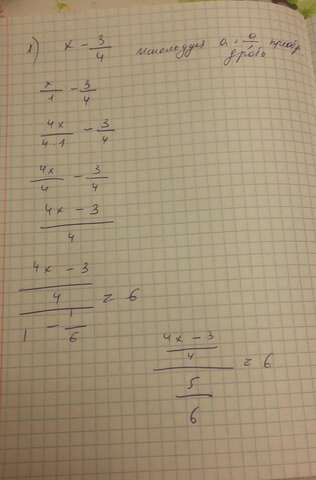 1) x - 3/4 используя a = a/1 преобр.
дробь
x/1 - 3/4
4x/4·1 - 3/4
4x/4 - 3/4
4x - 3/4
4x - 3/4/1 - 1/6 = 6
4x - 3/4/5/6 = 6